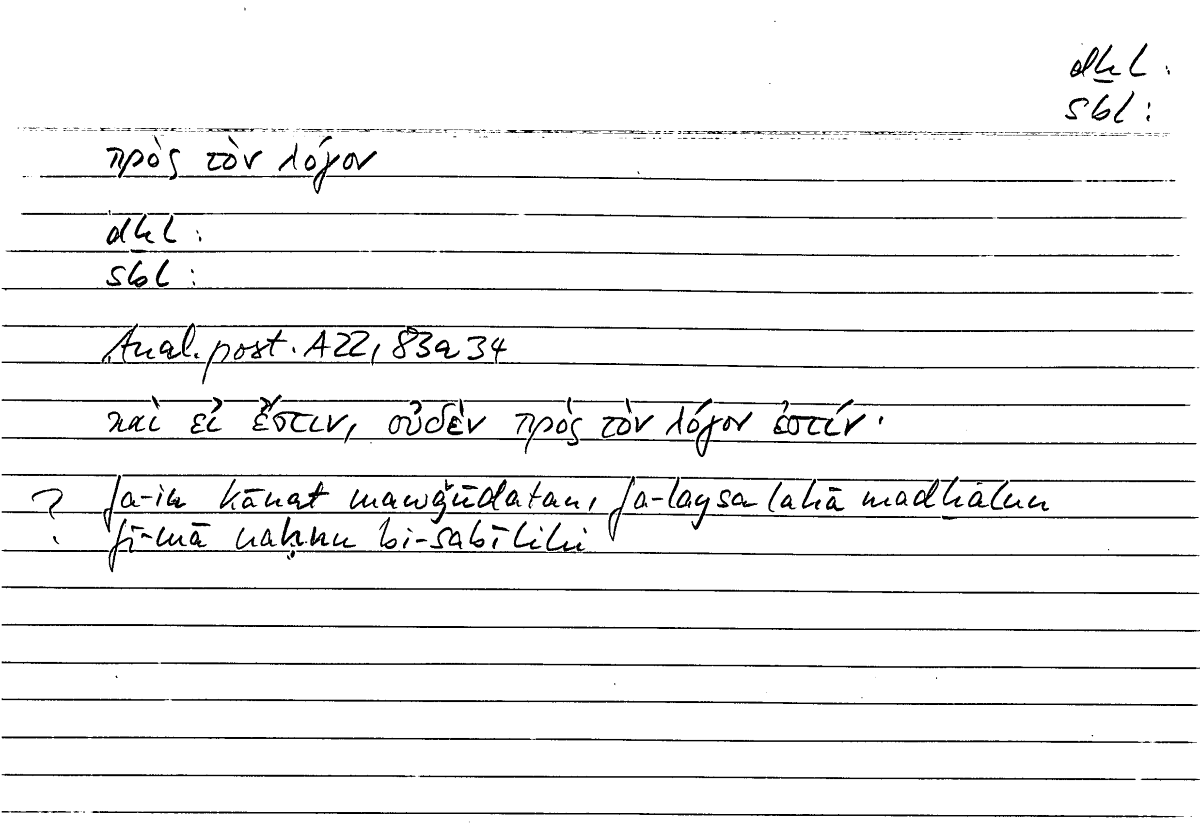 dḫl :
sbl :
πρὸς τὸν λόγον
dḫl :
sbl :
Anal. post. A22, 83a34
καὶ εἰ ἔστιν, οὐδὲν πρὸς τὸν λόγον ἐστίν·
? fa-in kānat mawǧūdatan, fa-laysa lahā madḫālun
fī-mā naḥnu bi-sabīlihi